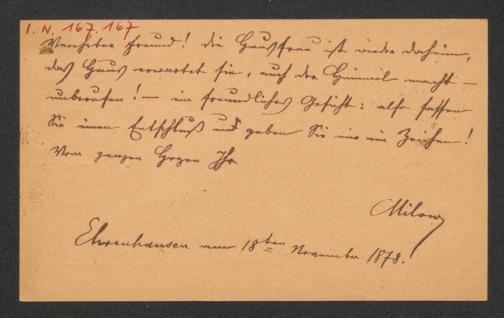 I. N. 167.167
Verehrter Freund! die Hausfrau ist wieder daheim,
das Haus erwartet Sie, auch der Himmel macht –
unberufen! – ein freundliches Gesicht: also fassen
Sie einen Entschluß und geben Sie mir ein Zeichen!
Von ganzen Herzen Ihr
Milow
Ehrenhausen am 18ten November 1878.